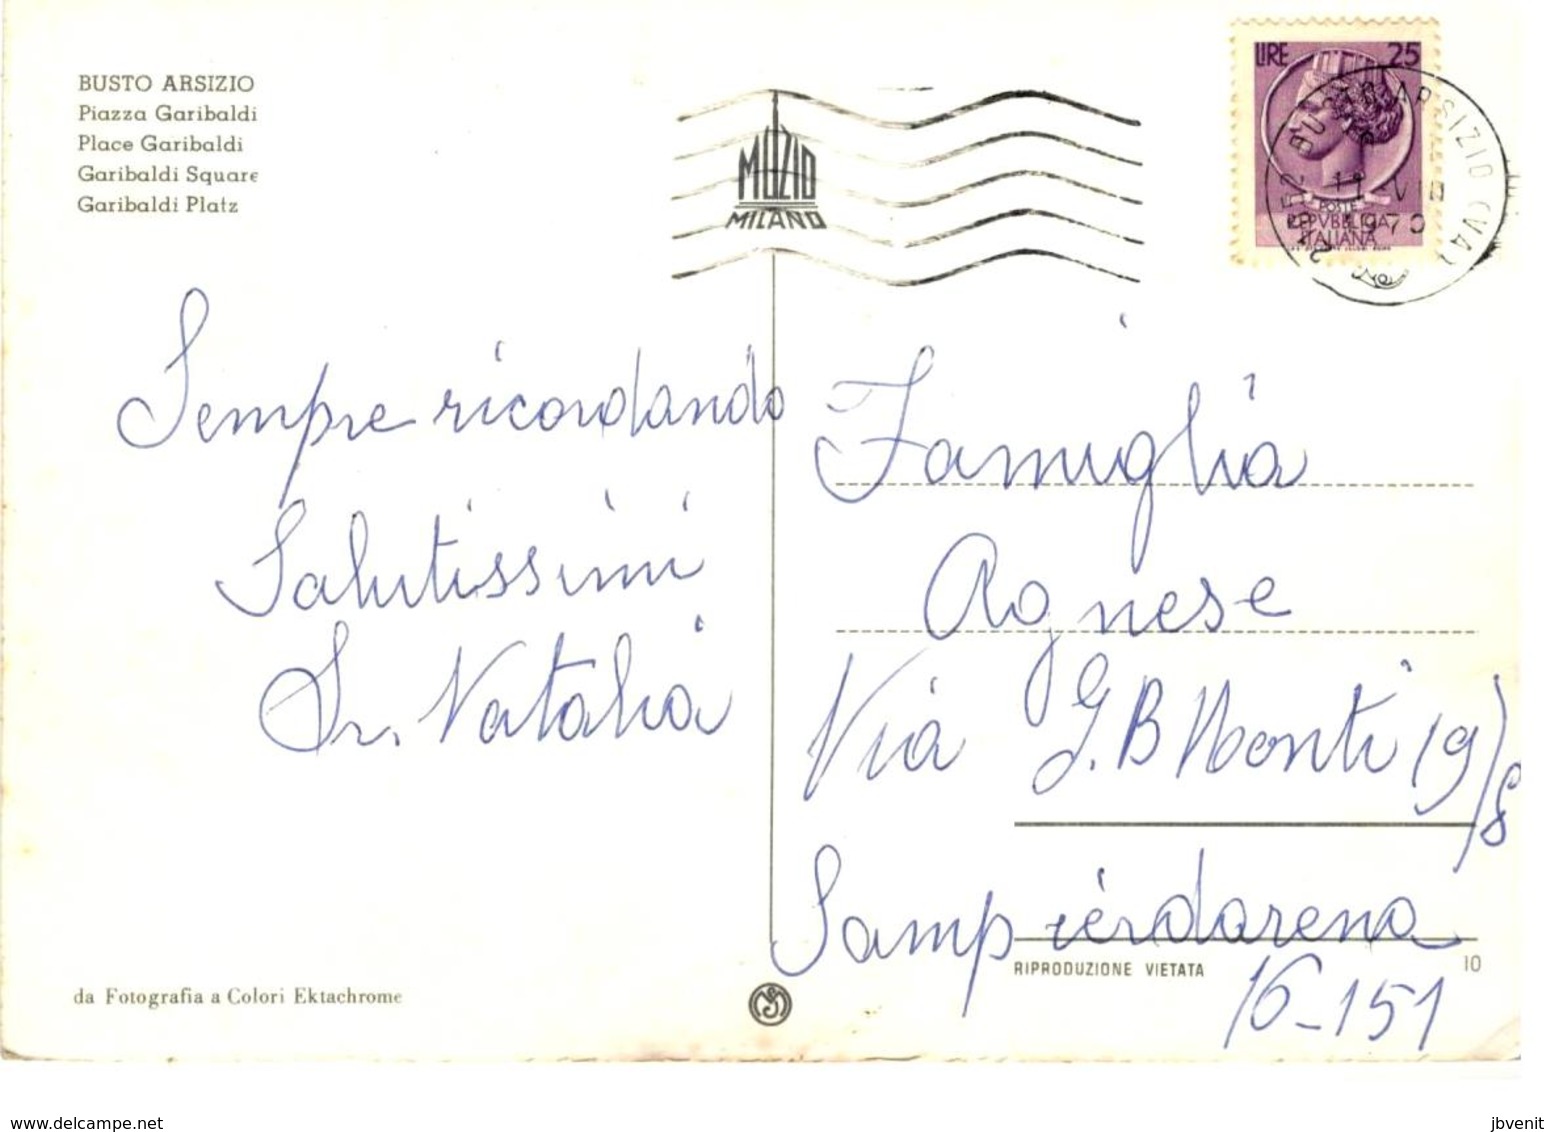 BUSTO ARSIZIO
Piazza Garibaldi
Place Garibaldi
Garibaldi Square
Garibaldi Platz
MUZIO
MILANO
LIRE 25
POSTE
REPVBBLICA
ITALIANA
21052 BUSTO ARSIZIO (VA)
Sempre ricordando
Salutissimi
Sr. Natalia
Famiglia
Agnese
Via G.B Monti 19/8
Sampierdarena
16-151
RIPRODUZIONE VIETATA
10
da Fotografia a Colori Ektachrome
www.delcampe.net
jbvenit